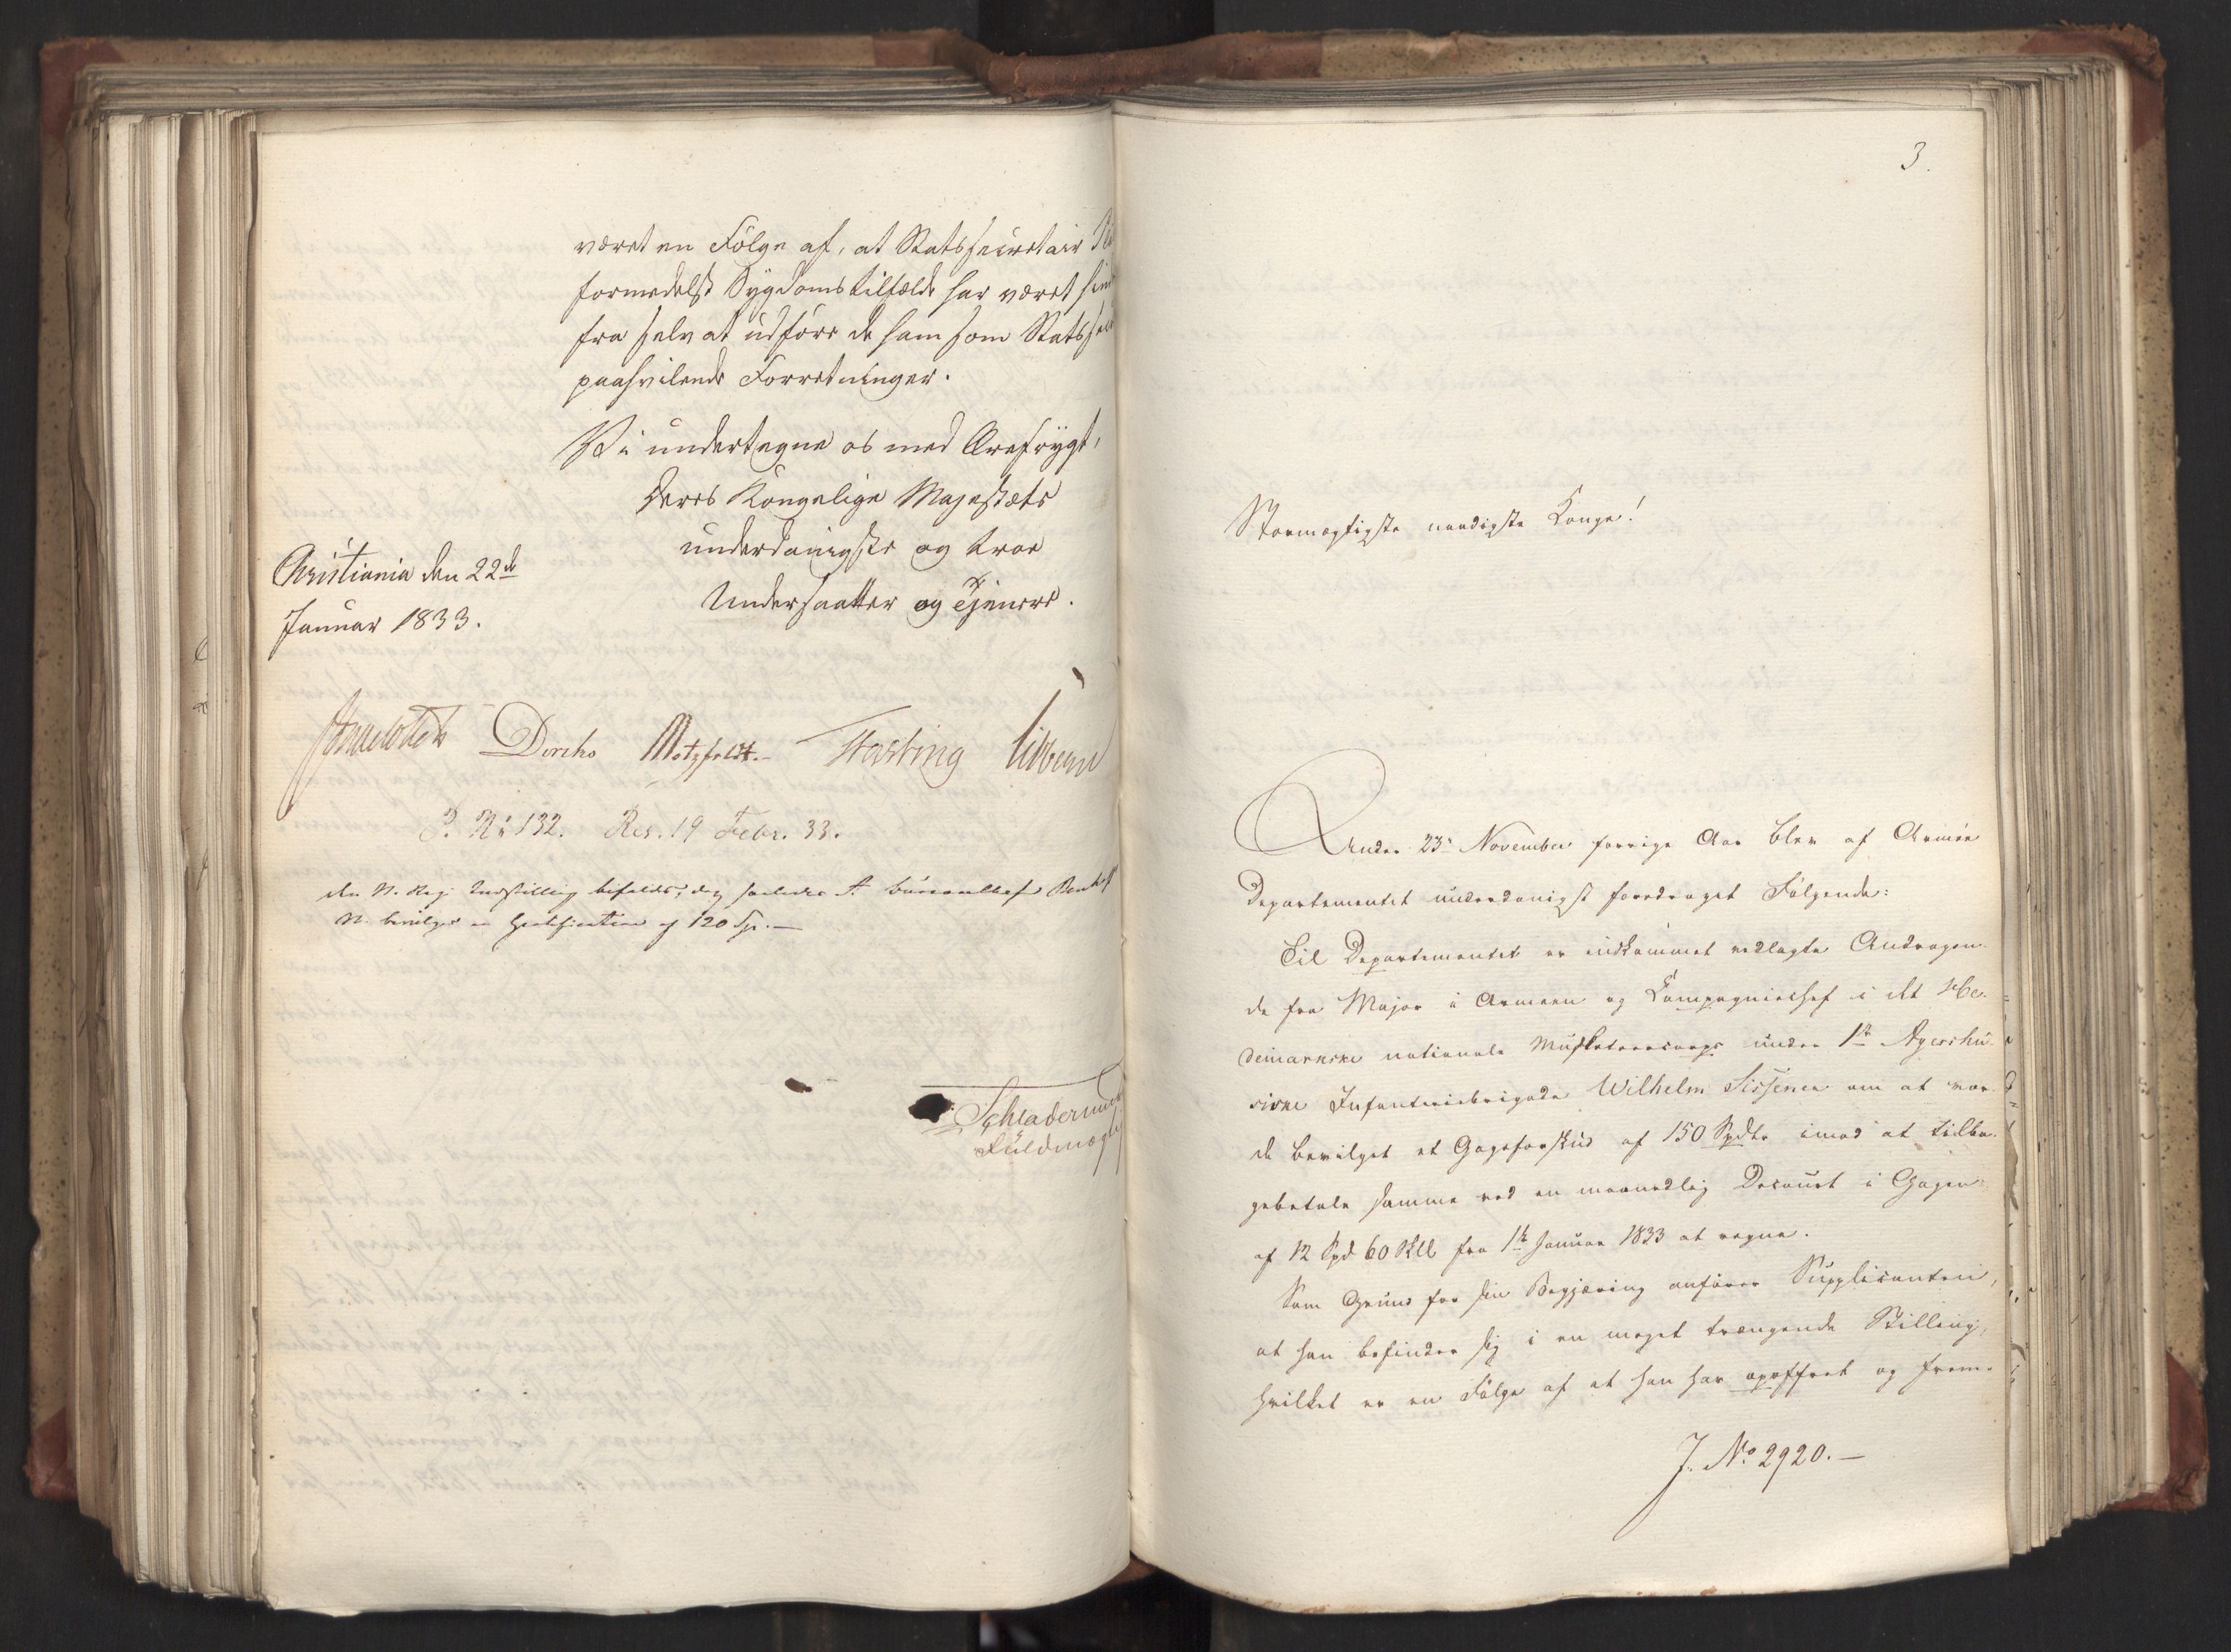 været en Følge af, at Statssecretair
formedelst Sygdomstilfælde har været
fra selv at udføre de ham som
paahvilende Forretninger.
Vi undertegne os med Ærefrygt,
Deres Kongelige Majestæts
underdanigste og troe
Undersaatter og Tjenere.
Christiania den 22de
Januar 1833.
Diriks Motzfeldt. Fasting
P. No 132. Res. 19 Febr. 33.
den N. Reg. Indstilling bifaldes, dog saaledes at bureauchef
N. bevilges en Gratification af 120 Sp.—
Fuldmægtig
3.
Stormægtigste naadigste Konge!
Under 23de November forrige Aar blev af Armee
Departementet underdanigst foredraget Følgende:
Til Departementet er indkommet vedlagte Andragen-
de fra Major i Armeen og Compagniechef i det He-
demarkske nationale Musketeercorps under 1ste Agershu-
siske Infanteriebrigade Wilhelm Sissener om at vor-
de bevilget et Gageforskud af 150 Spdlr imod at tilba-
gebetale samme ved en maanedlig Decourt i Gagen
af 12 Spd 60 Skll fra 1ste Januar 1833 at regne.
Som Grund for sin Begjæring anfører Supplicanten,
at han befinder sig i en meget trængende Stilling,
hvilket er en Følge af at han har opoffret og frem-
J. No 2920.—